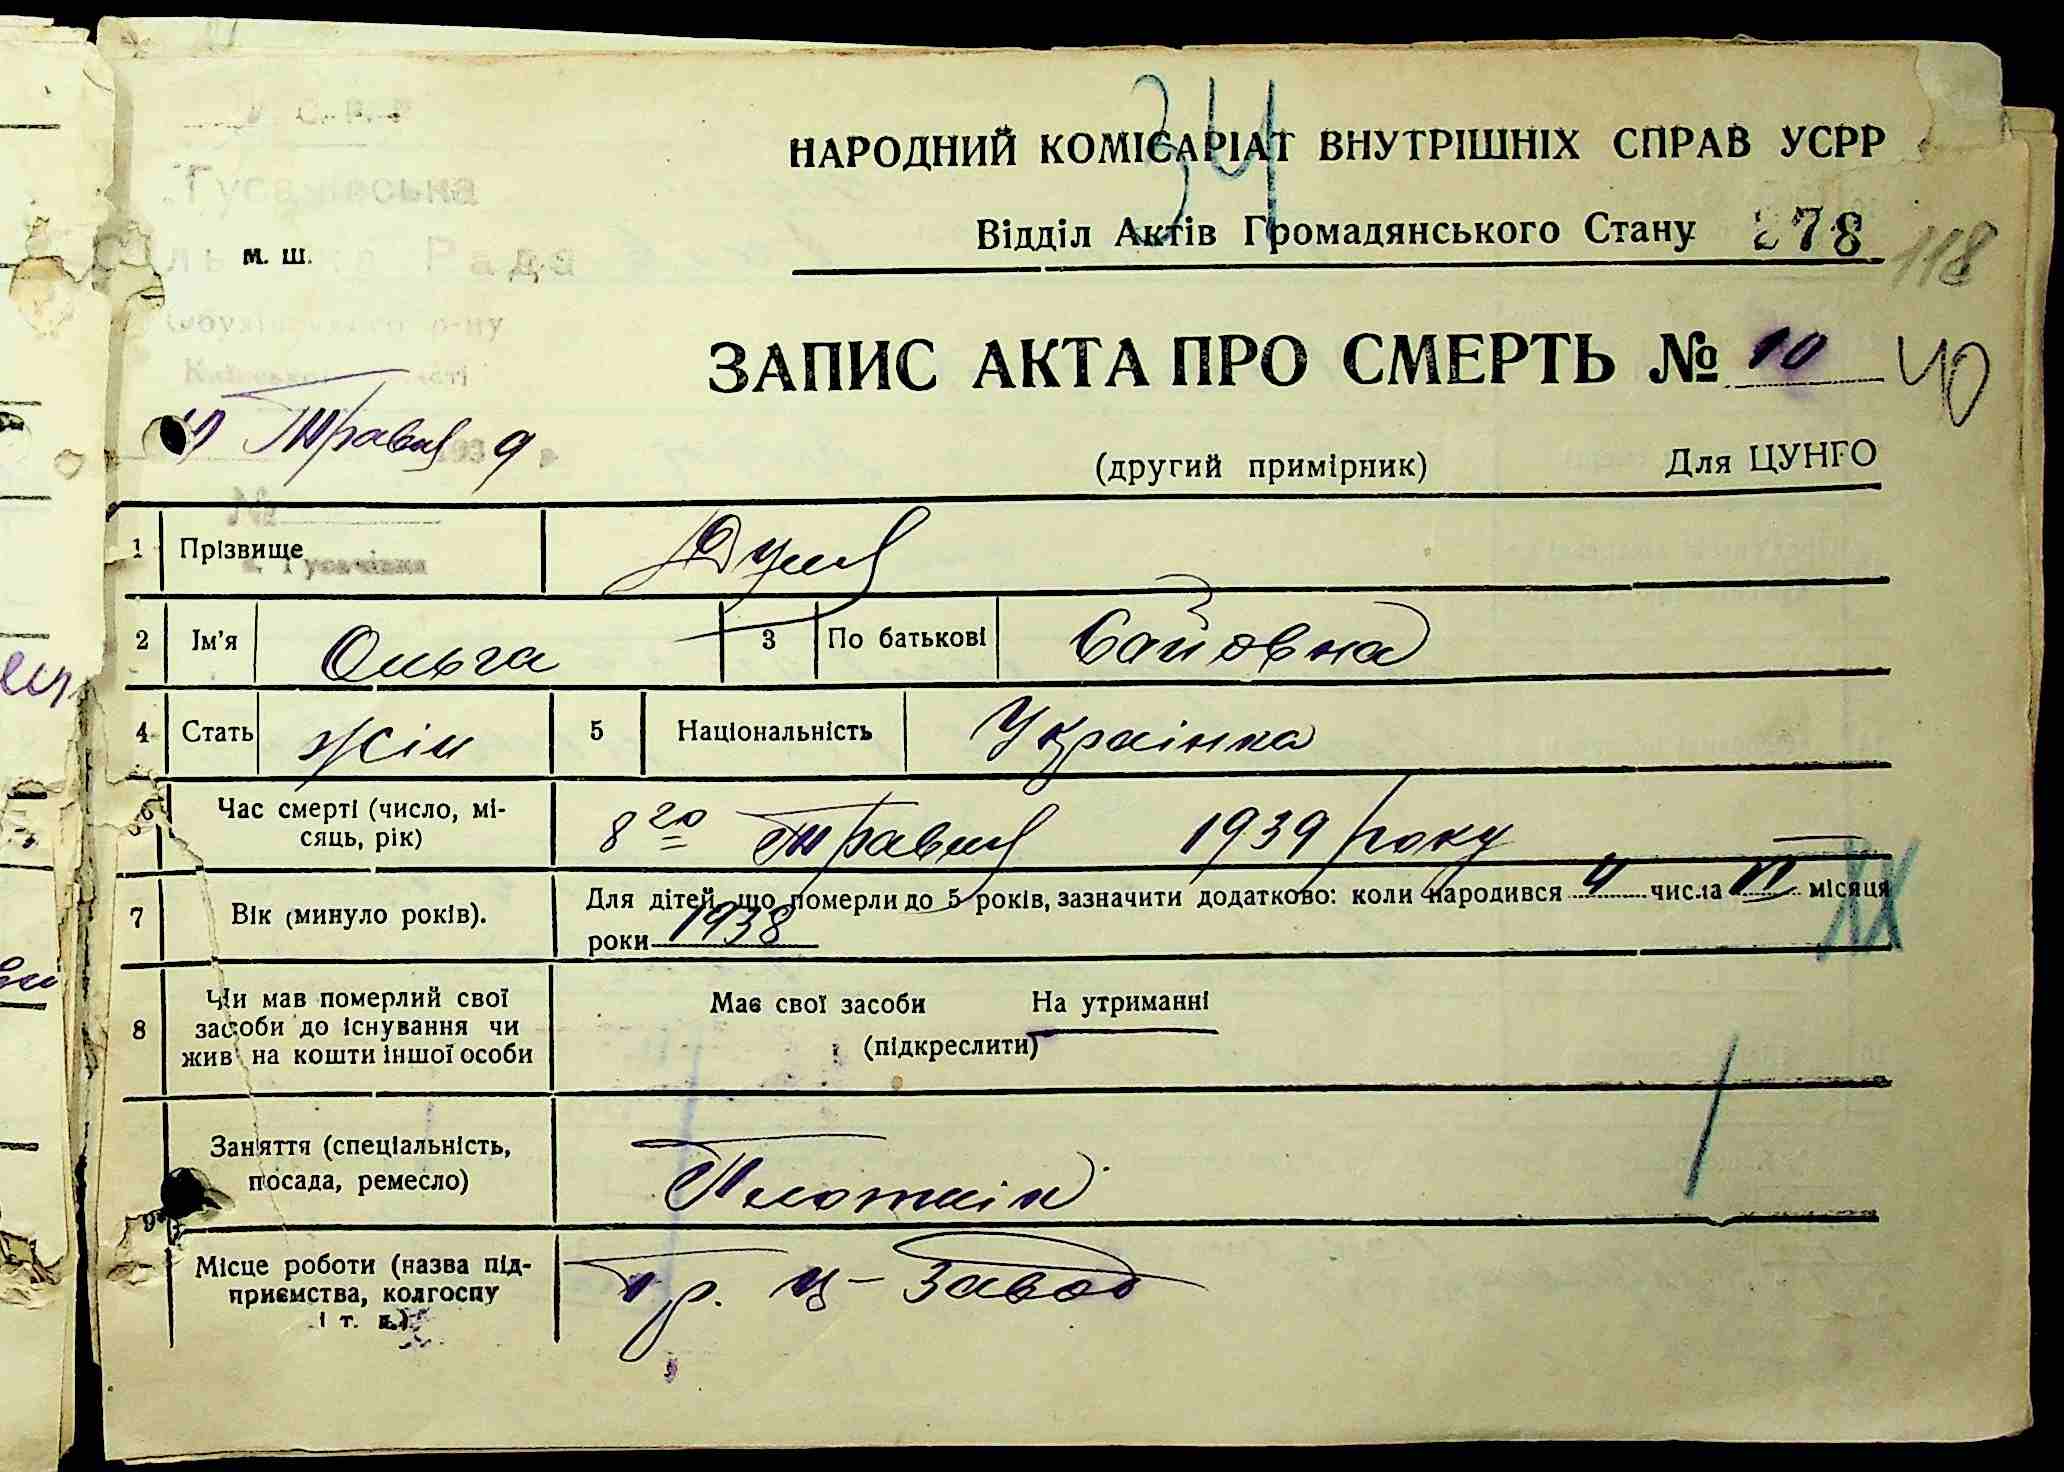 У. С. Р. Р
34
НАРОДНИЙ КОМІСАРІАТ ВНУТРІШНІХ СПРАВ УСРР
Гусачівська
Відділ Актів Громадянського Стану 278 118
м. ш.
Рада
р-ну
ЗАПИС АКТА ПРО СМЕРТЬ № 10 40
Травня 9
(другий примірник) Для ЦУНГО
№
с. Гусачівка
1 Прізвище
2 Ім'я Ольга 3 По батькові
4 Стать жін 5 Національність Українка
6 Час смерті (число, мі-
сяць, рік) 8 20 Травня 1939 року
7 Вік (минуло років). Для дітей, що померли до 5 років, зазначити додатково: коли народився 4 числа VI місяця
роки 1938
8 Чи мав померлий свої
засоби до існування чи
жив на кошти іншої особи
Має свої засоби На утриманні
(підкреслити)
9 Заняття (спеціальність,
посада, ремесло) Плотнік
Місце роботи (назва під-
приємства, колгоспу
і т. д.) Гр. Ц-Завод